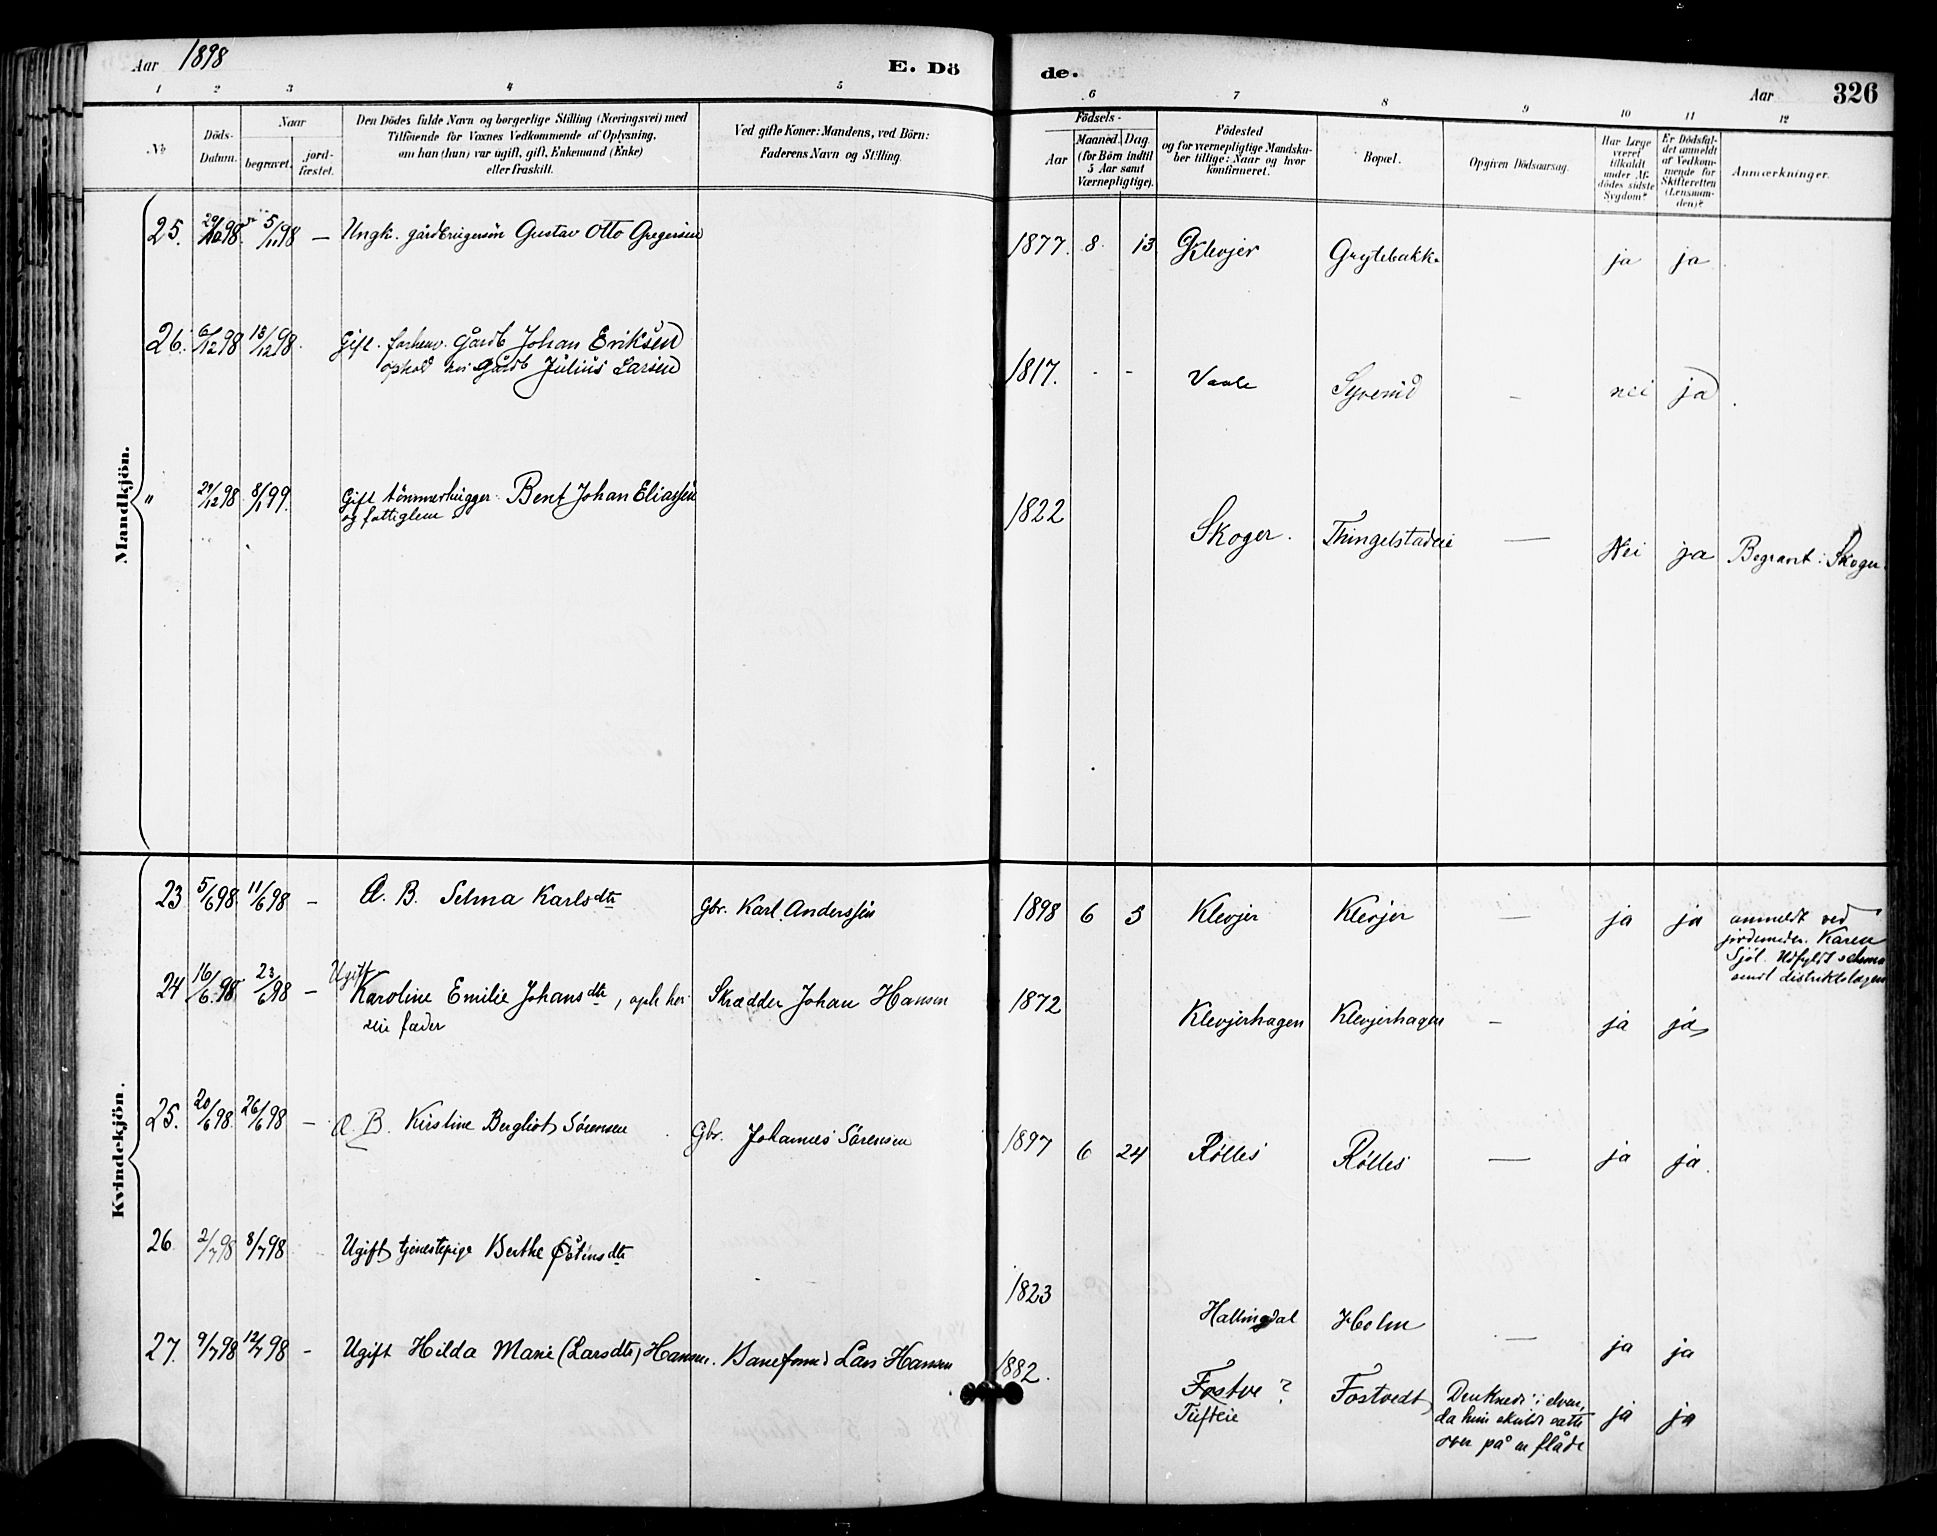 Aar 1898
E. Dö
de.
Aar
326
1 2 3 4 5 6 7 8 9 10 11 12
No
Döds-
Datum.
Naar
begravet.
jord-
fæstet.
Den Dödes fulde Navn og borgerlige Stilling (Næringsvei) med
Tilföiende for Voxnes Vedkommende af Oplysning,
om han (hun) var ugift, gift, Enkemand (Enke)
eller fraskilt.
Ved gifte Koner: Mandens, ved Börn:
Faderens Navn og Stilling.
Födsels-
Aar
Maaned. Dag.
(for Börn indtil
5 Aar samt
Værnepligtige).
Födested
og for værnepligtige Mandsku-
ber tillige: Naar og hvor
konfirmeret.
Bopæl.
Opgiven Dödsaarsag.
Har Læge
været
tilkaldt
under Af-
dödes sidste
Sygdom?
Er Dödsfal-
det anmeldt
af Vedkom-
mende for
Skifteretten
(Lensman-
den)?
Anmærkninger.
Mandkjön.
25. 29/10 98 5/11 98 — Ungk. gårdbrugersön Gustav Otto Gregersen 1877. 8. 13 Klevjer Grytebakke ja ja
26. 6/12 98 13/12 98. Gift. forhenv. Gårdb Johan Eriksen 1817. - - Vaale nei ja
ophold hos Gårdb Julius Larsen
" 29/12 98 8/1 99. Gift tönmerhugger Bent Johan Eliassen 1822 Skoger. Thingelstadeie — Nei ja Begravet i Skoger.
og fattiglem
Kvindekjön.
23 5/6 98 11/6 98 — Æ. B. Selma Karlsdtr Gbr. Karl Anderssen 1898 6 5 Klevjer Klevjer — ja ja anmeldt ved
jordemoder Karen
Sjöl. Udfyldt schema
sendt distriktslægen
24 16/6 98 23/6 98 — Ugift
Karoline Emilie Johansdtr, oph. hos Skrædder Johan Hansen 1872 Klevjerhagen Klevjerhagen — ja ja
sin fader
25. 20/6 98. 26/6 98 — Æ. B. Kirstine Bergliot Sörensen Gbr. Johannes Sörensen 1897 6 24 Rölles Rölles — ja ja.
26 2/7 98 8/7 98 Ugift tjenestepige Berthe Östensdtr 1823 Hallingdal Holm — ja ja
27. 9/7 98 12/7 98 - Ugift Hilda Marie (Larsdtr) Hansen. Baneform. Lars Hansen 1882. Fostve? Fostvedt Druknede i elven, ja ja
Tufteie da hun skulde sætte
over på en flåde